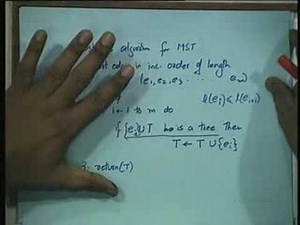 algorithm for MST
edges in inc. order of length
(e₁, e₂, e₃ ..... eₘ)
l(eᵢ) ≤ l(eᵢ₊₁)
1 to m do
if {eᵢ} ∪ T is a tree then
T ← T ∪ {eᵢ}
3. return(T)